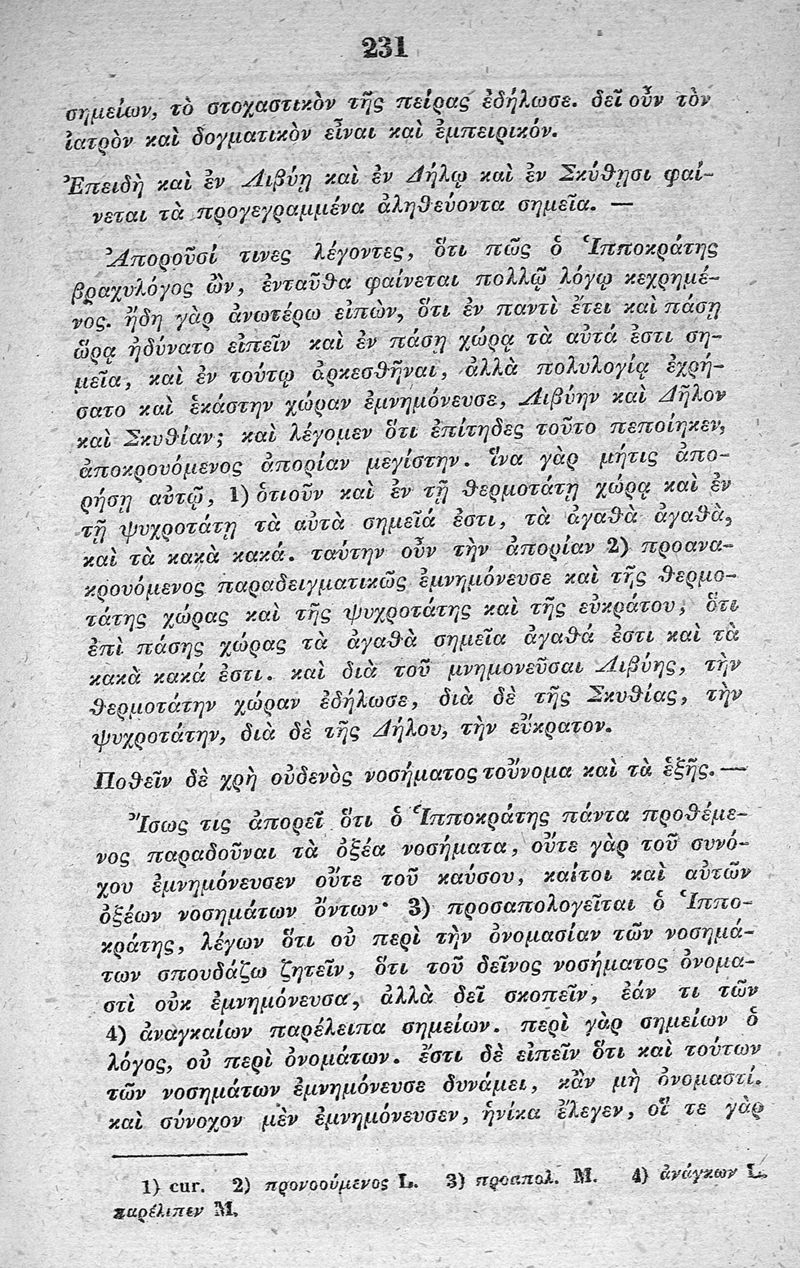 231
σημείων, τὸ στοχαστικὸν τῆς πείρας ἐδήλωσε. δεῖ οὖν τὸν
ἰατρὸν καὶ δογματικὸν εἶναι καὶ ἐμπειρικόν.
Ἐπειδὴ καὶ ἐν Λιβύῃ καὶ ἐν Δήλῳ καὶ ἐν Σκύθῃσι φαί-
νεται τὰ προγεγραμμένα ἀληθεύοντα σημεῖα. —
Ἀποροῦσί τινες λέγοντες, ὅτι πῶς ὁ Ἱπποκράτης
βραχυλόγος ὢν, ἐνταῦθα φαίνεται πολλῷ λόγῳ κεχρημέ-
νος. ἤδη γὰρ ἀνωτέρω εἰπὼν, ὅτι ἐν παντὶ ἔτει καὶ πάσῃ
ὥρᾳ ἠδύνατο εἰπεῖν καὶ ἐν πάσῃ χώρᾳ τὰ αὐτά ἐστι ση-
μεῖα, καὶ ἐν τούτῳ ἀρκεσθῆναι, ἀλλὰ πολυλογίᾳ ἐχρή-
σατο καὶ ἑκάστην χώραν ἐμνημόνευσε, Λιβύην καὶ Δῆλον
καὶ Σκυθίαν; καὶ λέγομεν ὅτι ἐπίτηδες τοῦτο πεποίηκεν,
ἀποκρουόμενος ἀπορίαν μεγίστην. ἵνα γὰρ μήτις ἀπο-
ρήσῃ αὐτῷ, 1) ὁτιοῦν καὶ ἐν τῇ θερμοτάτῃ χώρᾳ καὶ ἐν
τῇ ψυχροτάτῃ τὰ αὐτὰ σημεῖά ἐστι, τὰ ἀγαθὰ ἀγαθὰ,
καὶ τὰ κακὰ κακά. ταύτην οὖν τὴν ἀπορίαν 2) προανα-
κρουόμενος παραδειγματικῶς ἐμνημόνευσε καὶ τῆς θερμο-
τάτης χώρας καὶ τῆς ψυχροτάτης καὶ τῆς εὐκράτου, ὅτι
ἐπὶ πάσης χώρας τὰ ἀγαθὰ σημεῖα ἀγαθά ἐστι καὶ τὰ
κακὰ κακά ἐστι. καὶ διὰ τοῦ μνημονεῦσαι Λιβύης, τὴν
θερμοτάτην χώραν ἐδήλωσε, διὰ δὲ τῆς Σκυθίας, τὴν
ψυχροτάτην, διὰ δὲ τῆς Δήλου, τὴν εὔκρατον.
Ποθεῖν δὲ χρὴ οὐδενὸς νοσήματος τοὔνομα καὶ τὰ ἑξῆς. —
Ἴσως τις ἀπορεῖ ὅτι ὁ Ἱπποκράτης πάντα προθέμε-
νος παραδοῦναι τὰ ὀξέα νοσήματα, οὔτε γὰρ τοῦ συνό-
χου ἐμνημόνευσεν οὔτε τοῦ καύσου, καίτοι καὶ αὐτῶν
ὀξέων νοσημάτων ὄντων· 3) προσαπολογεῖται ὁ Ἱππο-
κράτης, λέγων ὅτι οὐ περὶ τὴν ὀνομασίαν τῶν νοσημά-
των σπουδάζω ζητεῖν, ὅτι τοῦ δεῖνος νοσήματος ὀνομα-
στὶ οὐκ ἐμνημόνευσα, ἀλλὰ δεῖ σκοπεῖν, ἐάν τι τῶν
4) ἀναγκαίων παρέλειπα σημείων. περὶ γὰρ σημείων ὁ
λόγος, οὐ περὶ ὀνομάτων. ἔστι δὲ εἰπεῖν ὅτι καὶ τούτων
τῶν νοσημάτων ἐμνημόνευσε δυνάμει, κἂν μὴ ὀνομαστί.
καὶ σύνοχον μὲν ἐμνημόνευσεν, ἡνίκα ἔλεγεν, οἵ τε γὰρ
1) cur. 2) προνοούμενος L. 3) προαπολ. M. 4) ἀνάγκων L.
παρέλιπεν M.